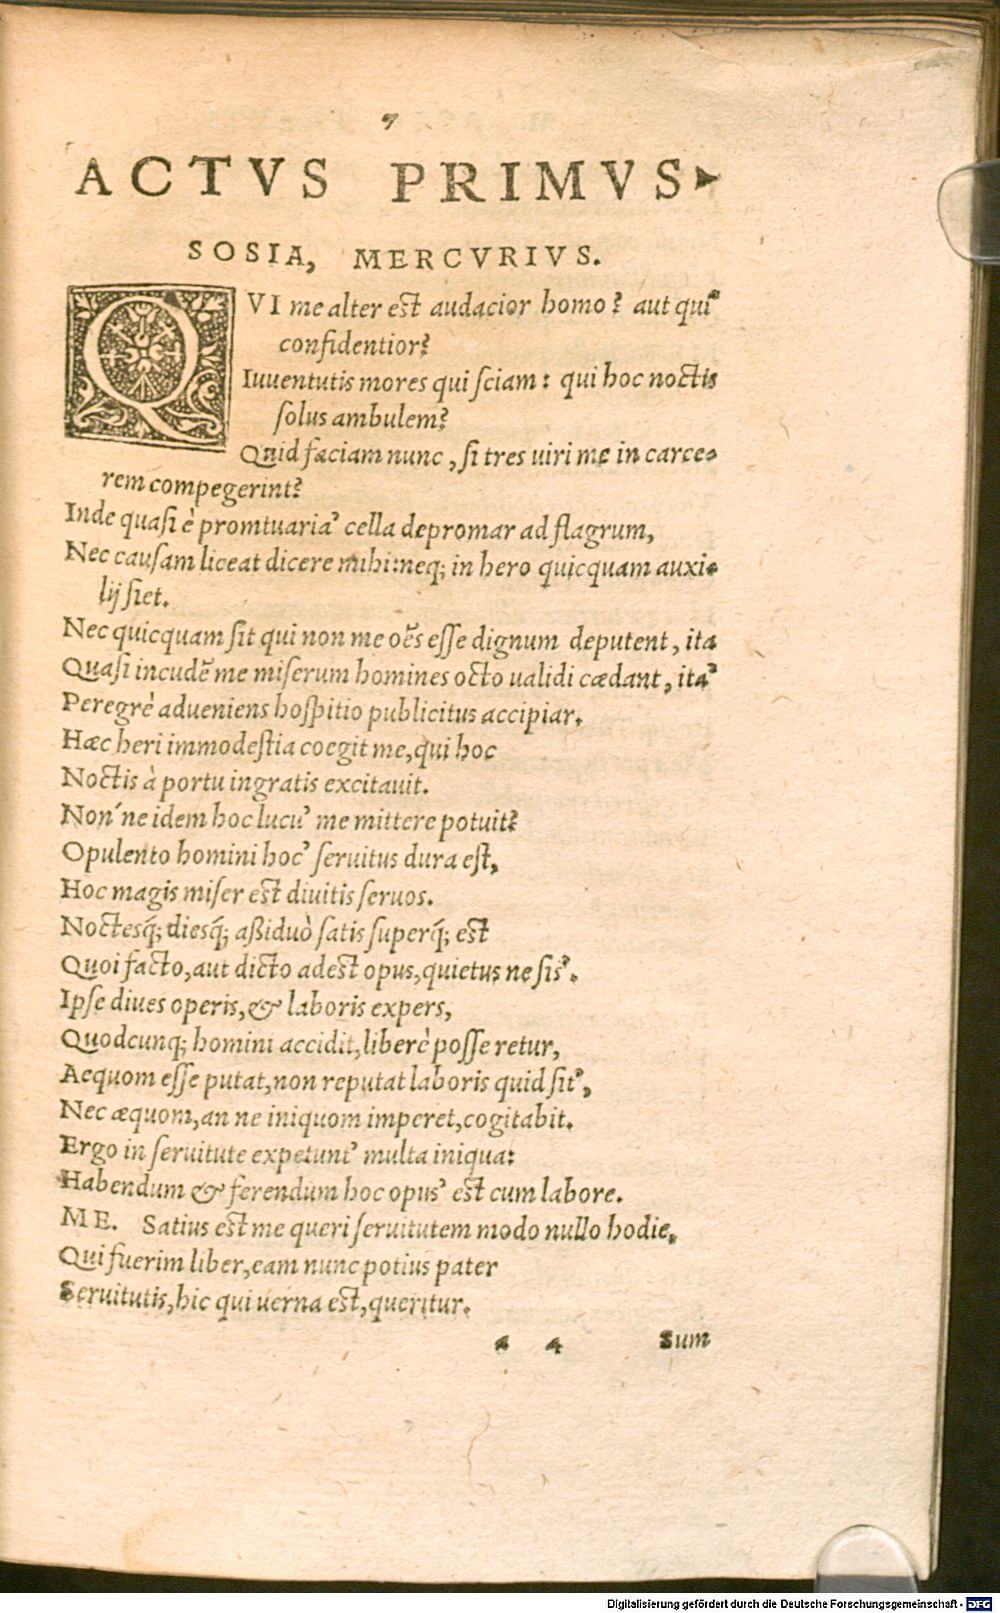 7
ACTVS PRIMVS
SOSIA, MERCVRIVS.
QVI me alter est audacior homo? aut qui'
confidentior?
Iuuentutis mores qui sciam: qui hoc noctis
solus ambulem?
Quid faciam nunc, si tres uiri me in carce-
rem compegerint?
Inde quasi è promtuaria' cella depromar ad flagrum,
Nec causam liceat dicere mihi: neq; in hero quicquam auxi-
lij siet.
Nec quicquam sit qui non me oẽs esse dignum deputent, ita
Quasi incudẽ me miserum homines octo ualidi cædant, ita'
Peregrè adueniens hospitio publicitus accipiar.
Hæc heri immodestia coegit me, qui hoc
Noctis à portu ingratis excitauit.
Non'ne idem hoc lucu' me mittere potuit?
Opulento homini hoc' seruitus dura est,
Hoc magis miser est diuitis seruos.
Noctesq́; diesq́; aßiduò satis superq́; est
Quoi facto, aut dicto adest opus, quietus ne sis'.
Ipse diues operis, & laboris expers,
Quodcunq; homini accidit, liberè posse retur,
Aequom esse putat, non reputat laboris quid sit',
Nec æquom, an ne iniquom imperet, cogitabit.
Ergo in seruitute expetunt' multa iniqua:
Habendum & ferendum hoc opus' est cum labore.
ME. Satius est me queri seruitutem modo nullo hodie,
Qui fuerim liber, eam nunc potius pater
Seruitutis, hic qui uerna est, queritur.
a 4 Sum
Digitalisierung gefördert durch die Deutsche Forschungsgemeinschaft - DFG